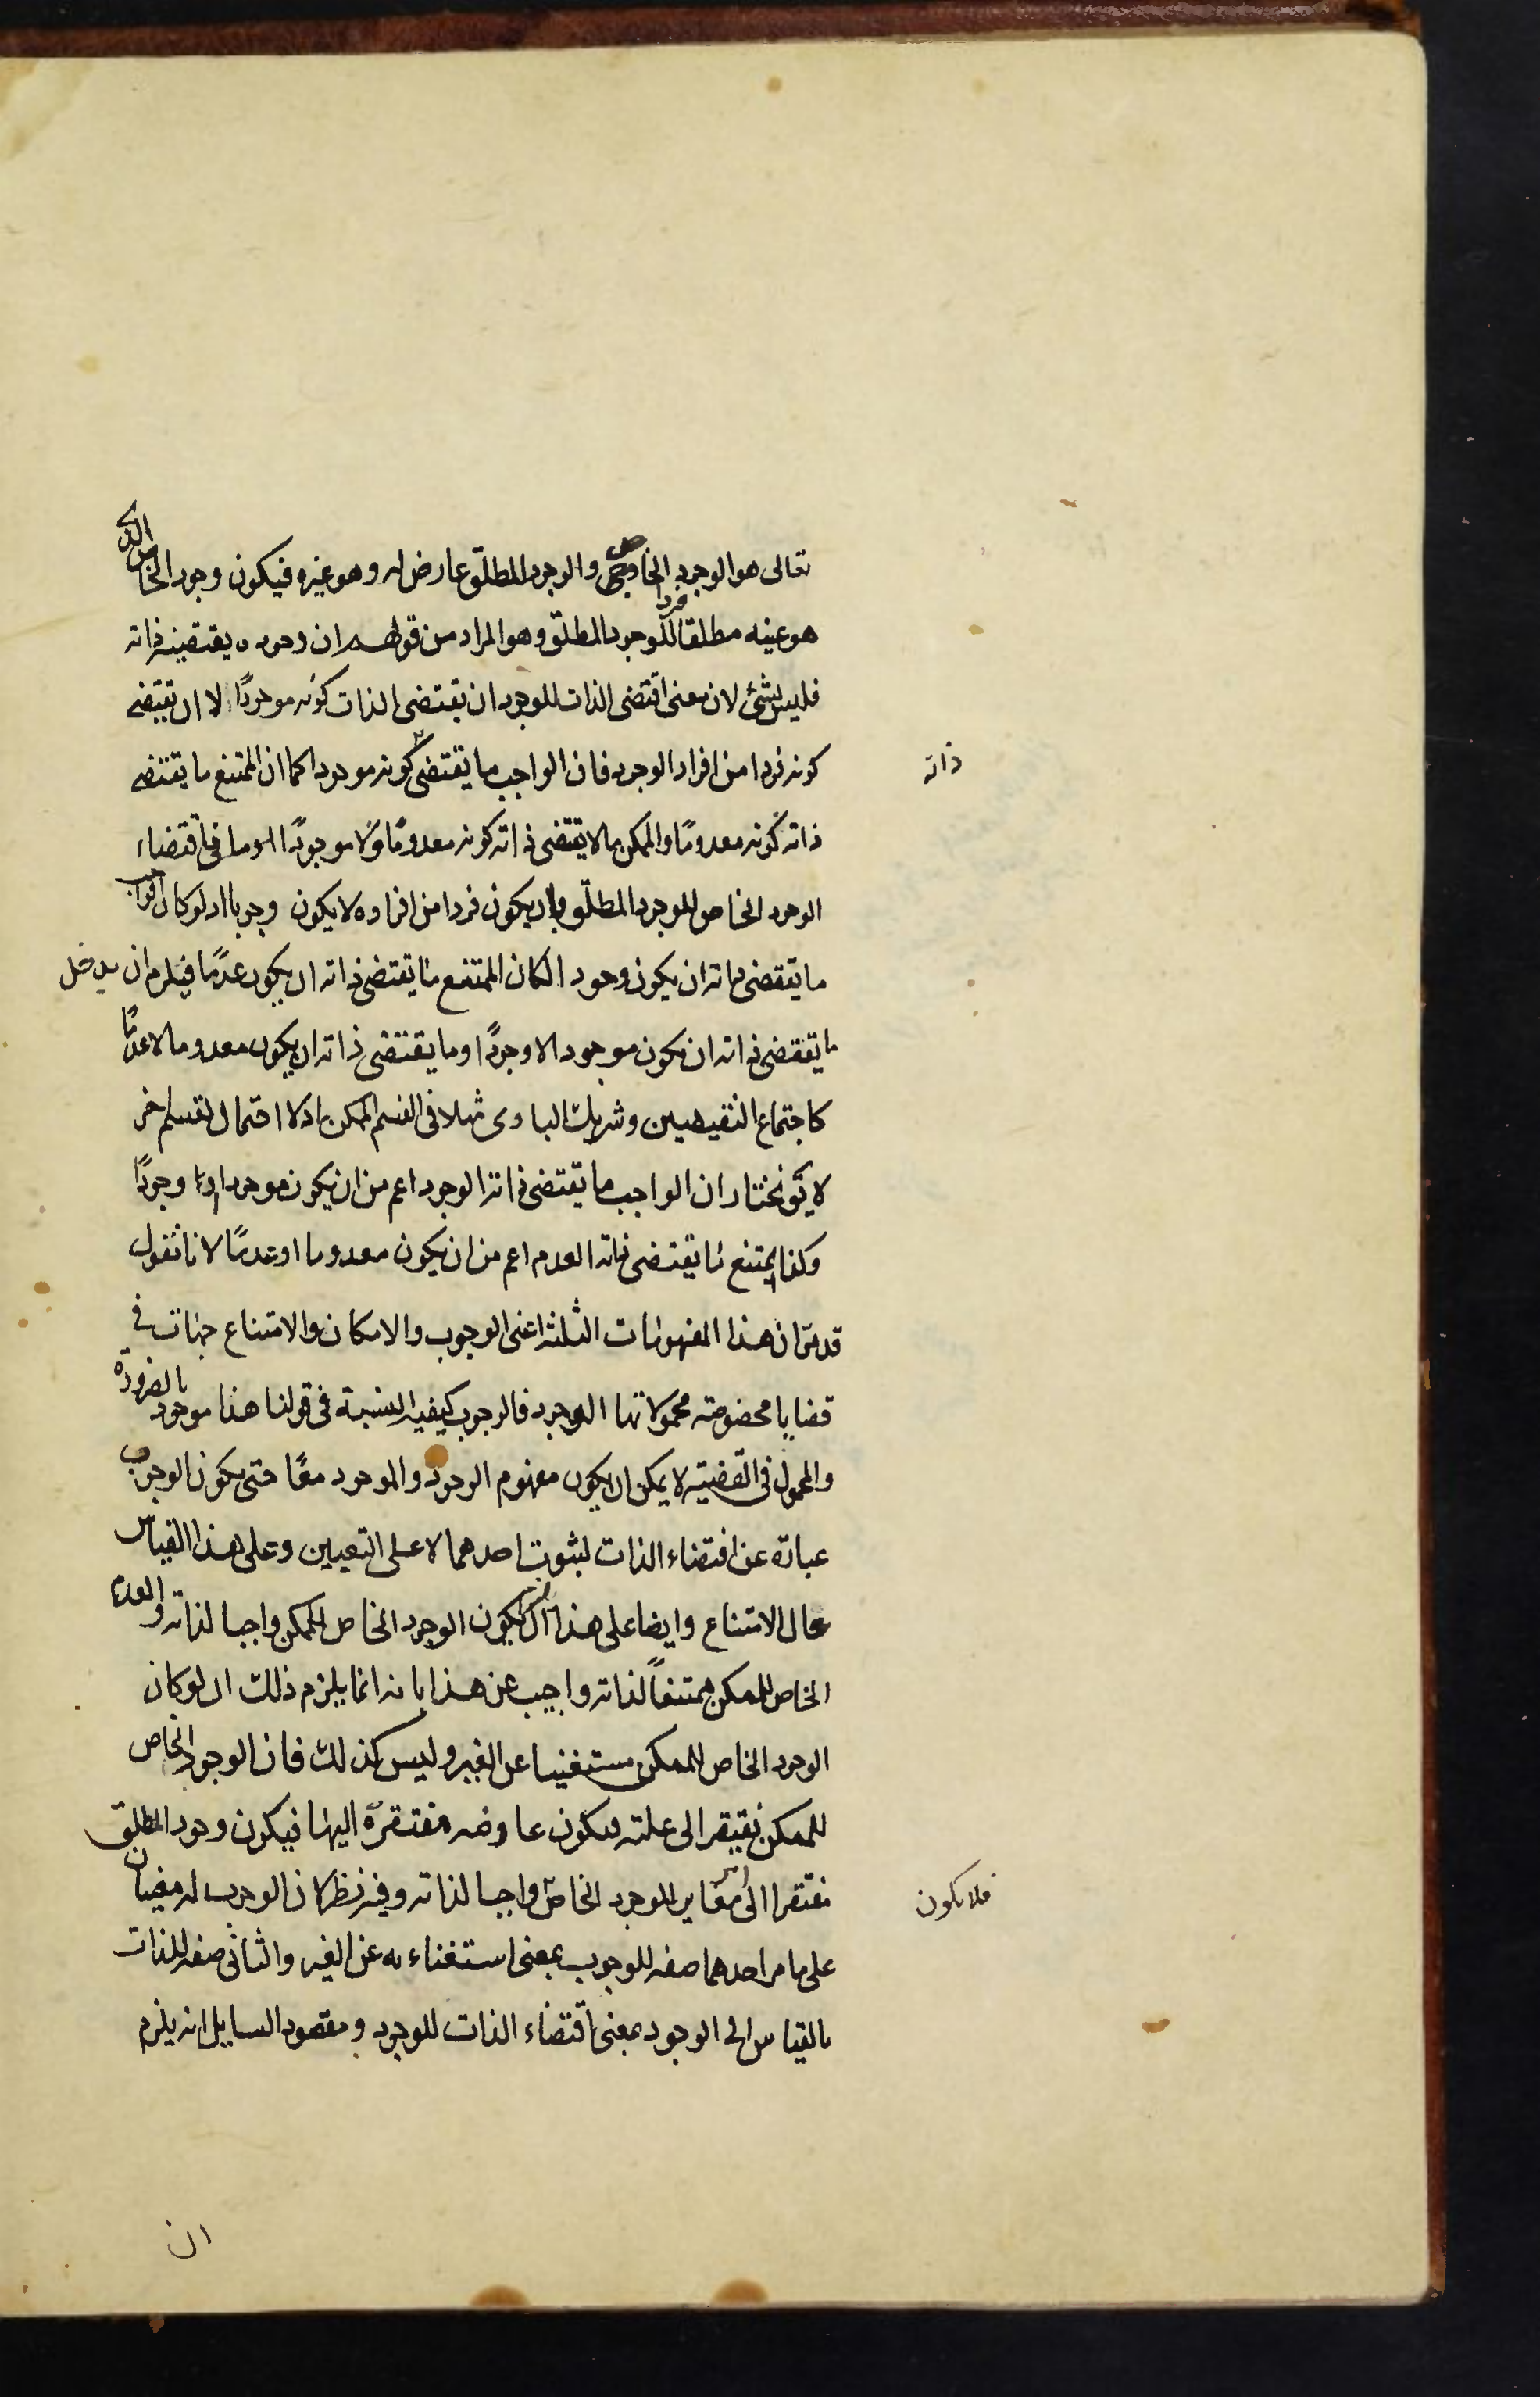 تعالى هو الوجود الخاص والوجود المطلق عارض له وهو غيره فيكون وجود الخاص الذى
هو عينه مطلقا فردا للوجود المطلق وهو المراد من قولهم ان وجوده يقتضيه ذاته
فليس بشئ لان معنى اقتضى الذات للوجود ان يقتضى الذات كونه موجودًا لا ان يقتضى
كونه فردا من افراد الوجود فان الواجب ما يقتضى كونه موجودا كما ان الممتنع ما يقتضى
ذاته
ذاته كونه معدومًا والممكن ما لا يقتضى ذاته كونه معدومًا ولا موجودًا اقتضاء
الوجود الخاص للوجود المطلق بان يكون فردا من افراده لا يكون وجوبا اذ لو كان الواجب
ما يقتضى ذاته ان يكون وجود الكان الممتنع ما يقتضى ذاته ان يكون عدمًا فيلزم ان يدخل
ما يقتضى ذاته ان يكون موجود الا وجودًا وما يقتضى ذاته ان يكون معدوما لا عدمًا
كاجتماع النقيضين وشريك البارى مثلا فى القسم الممكن اذ لا احتمال لقسم اخر
لا يقو نختار ان الواجب ما يقتضى ذاته الوجود اعم من ان يكون موجودا او وجودًا
وكذا الممتنع ما يقتضى ذاته العدم اعم من ان يكون معدوما او عدمًا لانا نقول
قد مر ان هذا المفهومات الثلثة اعنى الوجوب والامكان والامتناع جهات فى
قضايا مخصوصة محمولاتها الوجود فالوجوب كيفية النسبة فى قولنا هذا موجود بالضرورة
والمحمول فى القضية لا يمكن ان يكون مفهوم الوجود والموجود معًا حتى يكون الوجوب
عبارة عن اقتضاء الذات لثبوت احدهما لا على التعيين وعلى هذا القياس
حال الامتناع وايضا على هذا يكون الوجود الخاص للممكن واجبا لذاته والعدم
الخاص للممكن ممتنعًا لذاته واجيب عن هذا بانه انما يلزم ذلك ان لو كان
الوجود الخاص للممكن مستغنيا عن الغير وليس كذلك فان الوجود الخاص
للممكن يفتقر الى علته فيكون عارضه مفتقرة اليها فيكون وجود المطلق
مفتقرا الى امر مغاير للوجود الخاص واجبا لذاته وفيه نظر لان الوجوب له معنيان
فلا يكون
على ما مر احدهما صفة للوجوب بمعنى استغناءه عن الغير والثانى صفة للذات
بالقياس الى الوجود بمعنى اقتضاء الذات للوجود ومقصود السايل انه يلزم
ان